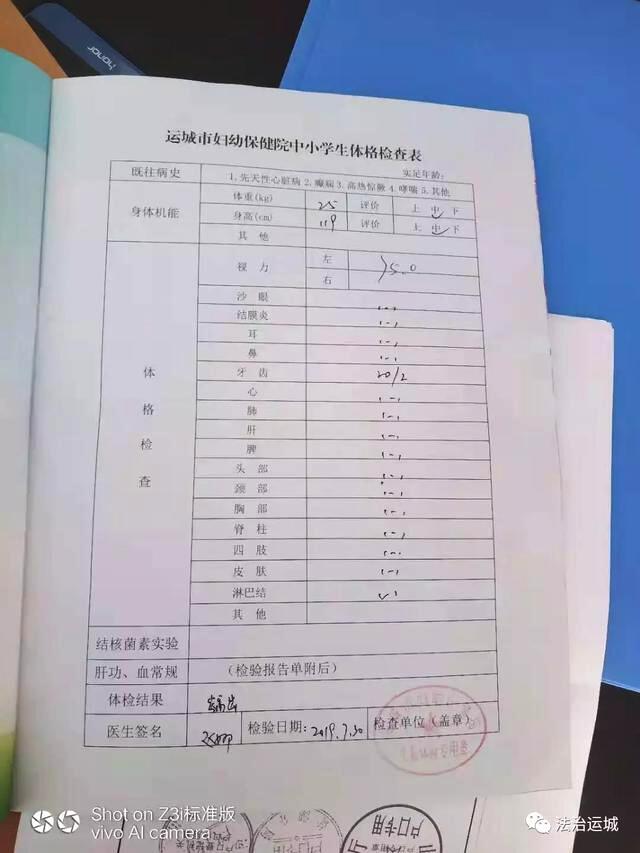 honor
运城市妇幼保健院中小学生体格检查表
实足年龄:
既往病史 1.先天性心脏病 2.癫痫 3.高热惊厥 4.哮喘 5.其他
身体机能 体重(kg) 25 评价 上 中 下
身高(cm) 119 评价 上 中 下
其他
体格检查 视力 左 >5.0
右
沙眼 (-)
结膜炎 (-)
耳 (-)
鼻 (-)
牙齿 20/2
心 (-)
肺 (-)
肝 (-)
脾 (-)
头部 (-)
颈部 (-)
胸部 (-)
脊柱 (-)
四肢 (-)
皮肤 (-)
淋巴结
其他
结核菌素实验
肝功、血常规 (检验报告单附后)
体检结果
医生签名 检验日期: 2019.7.30 检查单位(盖章)
专用章
Shot on Z3i标准版
vivo AI camera
户口专用
户口专用
法治运城